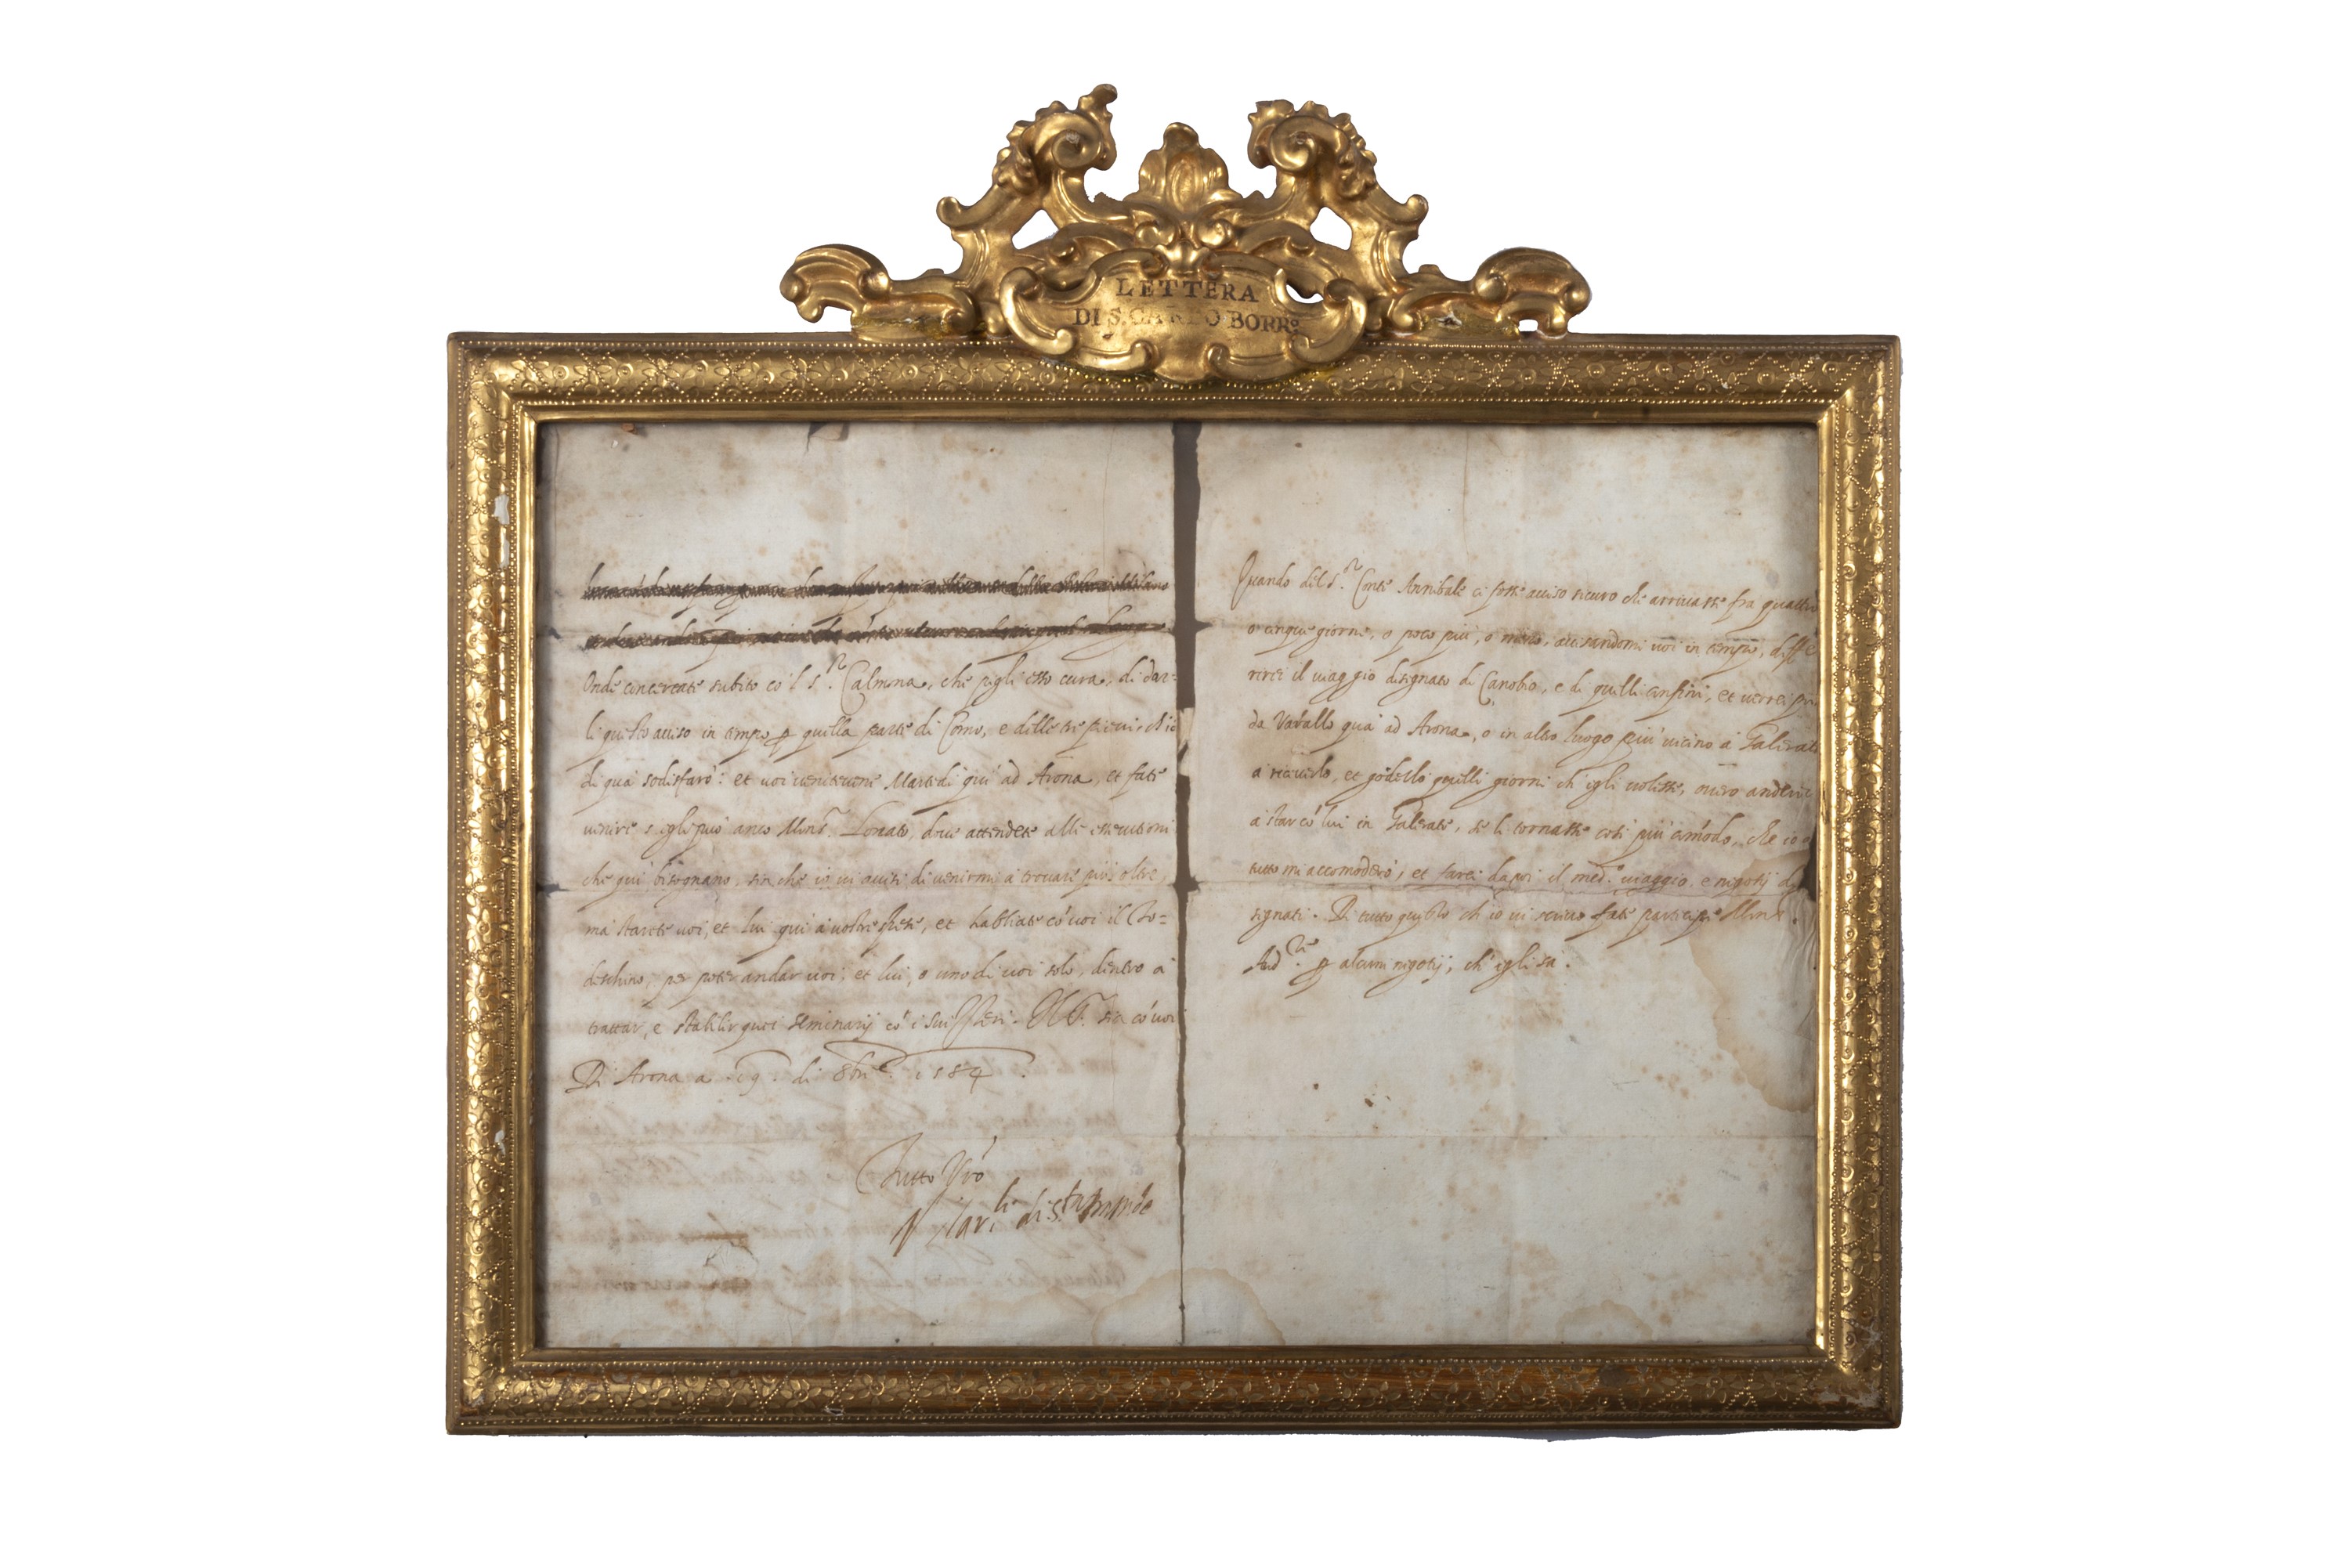 LETTERA
DI S. CARLO BORR.o
Onde concertate subito co'l s.r Calmona, che pigli esso cura, di dar=
li questo auiso in tempo p quella parte di Como, e delle tre pieui, ch'io
di qua sodisfarò: et uoi ueniteuene Martedi qui ad Arona, et fate
uenire s'egli può anco Mons.r Lonato, doue attendete alle essecutioni
che qui bisognano, sin che io ui auisi di uenirmi à trouare più oltre,
ma starete uoi, et lui qui a uostre spese, et habbiate có uoi il To=
deschino, per poter andar uoi, et lui, o uno di uoi solo, dentro à
trattar, e stabilir quei seminarij có i suizzeri. sia có uoi
Di Arona a .19. di 8bre. 1584.
Tutto Vrõ
Il Car.li di s.ta Prassede
Quando del s.r Conte Annibale ci fosse auiso sicuro che arriuasse fra quattro
o cinque giorni, o poco più, o meno, auisandomi uoi in tempo, diffe
rirei il uiaggio disignato di Canobio, e di quelli confini, et uerrei
da Varallo quà ad Arona, o in altro luogo più uicino à Galerate
à riceuerlo, et goderlo quelli giorni ch'egli uolesse, ouero anderei
à star có lui in Galerate, se li tornasse così più cómodo, che io
tutto mi accomoderò, et farei dapoi il med.o uiaggio e negotij de
signati. Di tutto questo ch'io ui scriuo fate partecipe Mons.r
Aud.re p alcuni negotij, ch'egli sà.